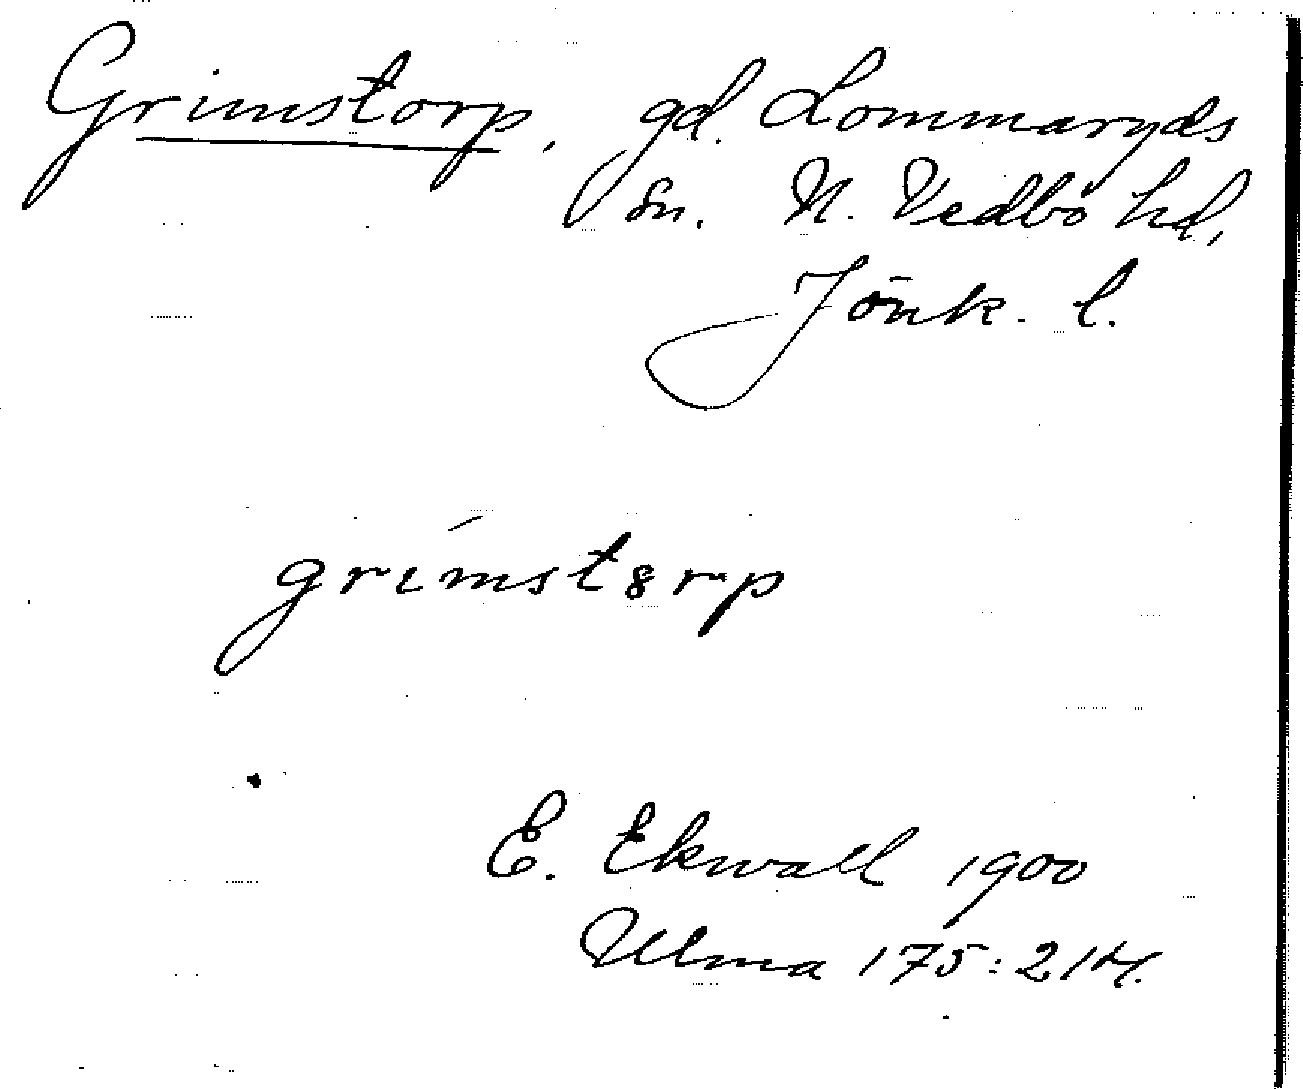 Grimstorp, gd. Lommaryds
sn. N. Vedbo hd,
Jönk. l.
grímst8rp
E. Ekwall 1900
Ulma 175:214.